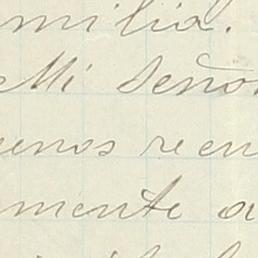 milia.
Mi Señor
enos reen
mente a